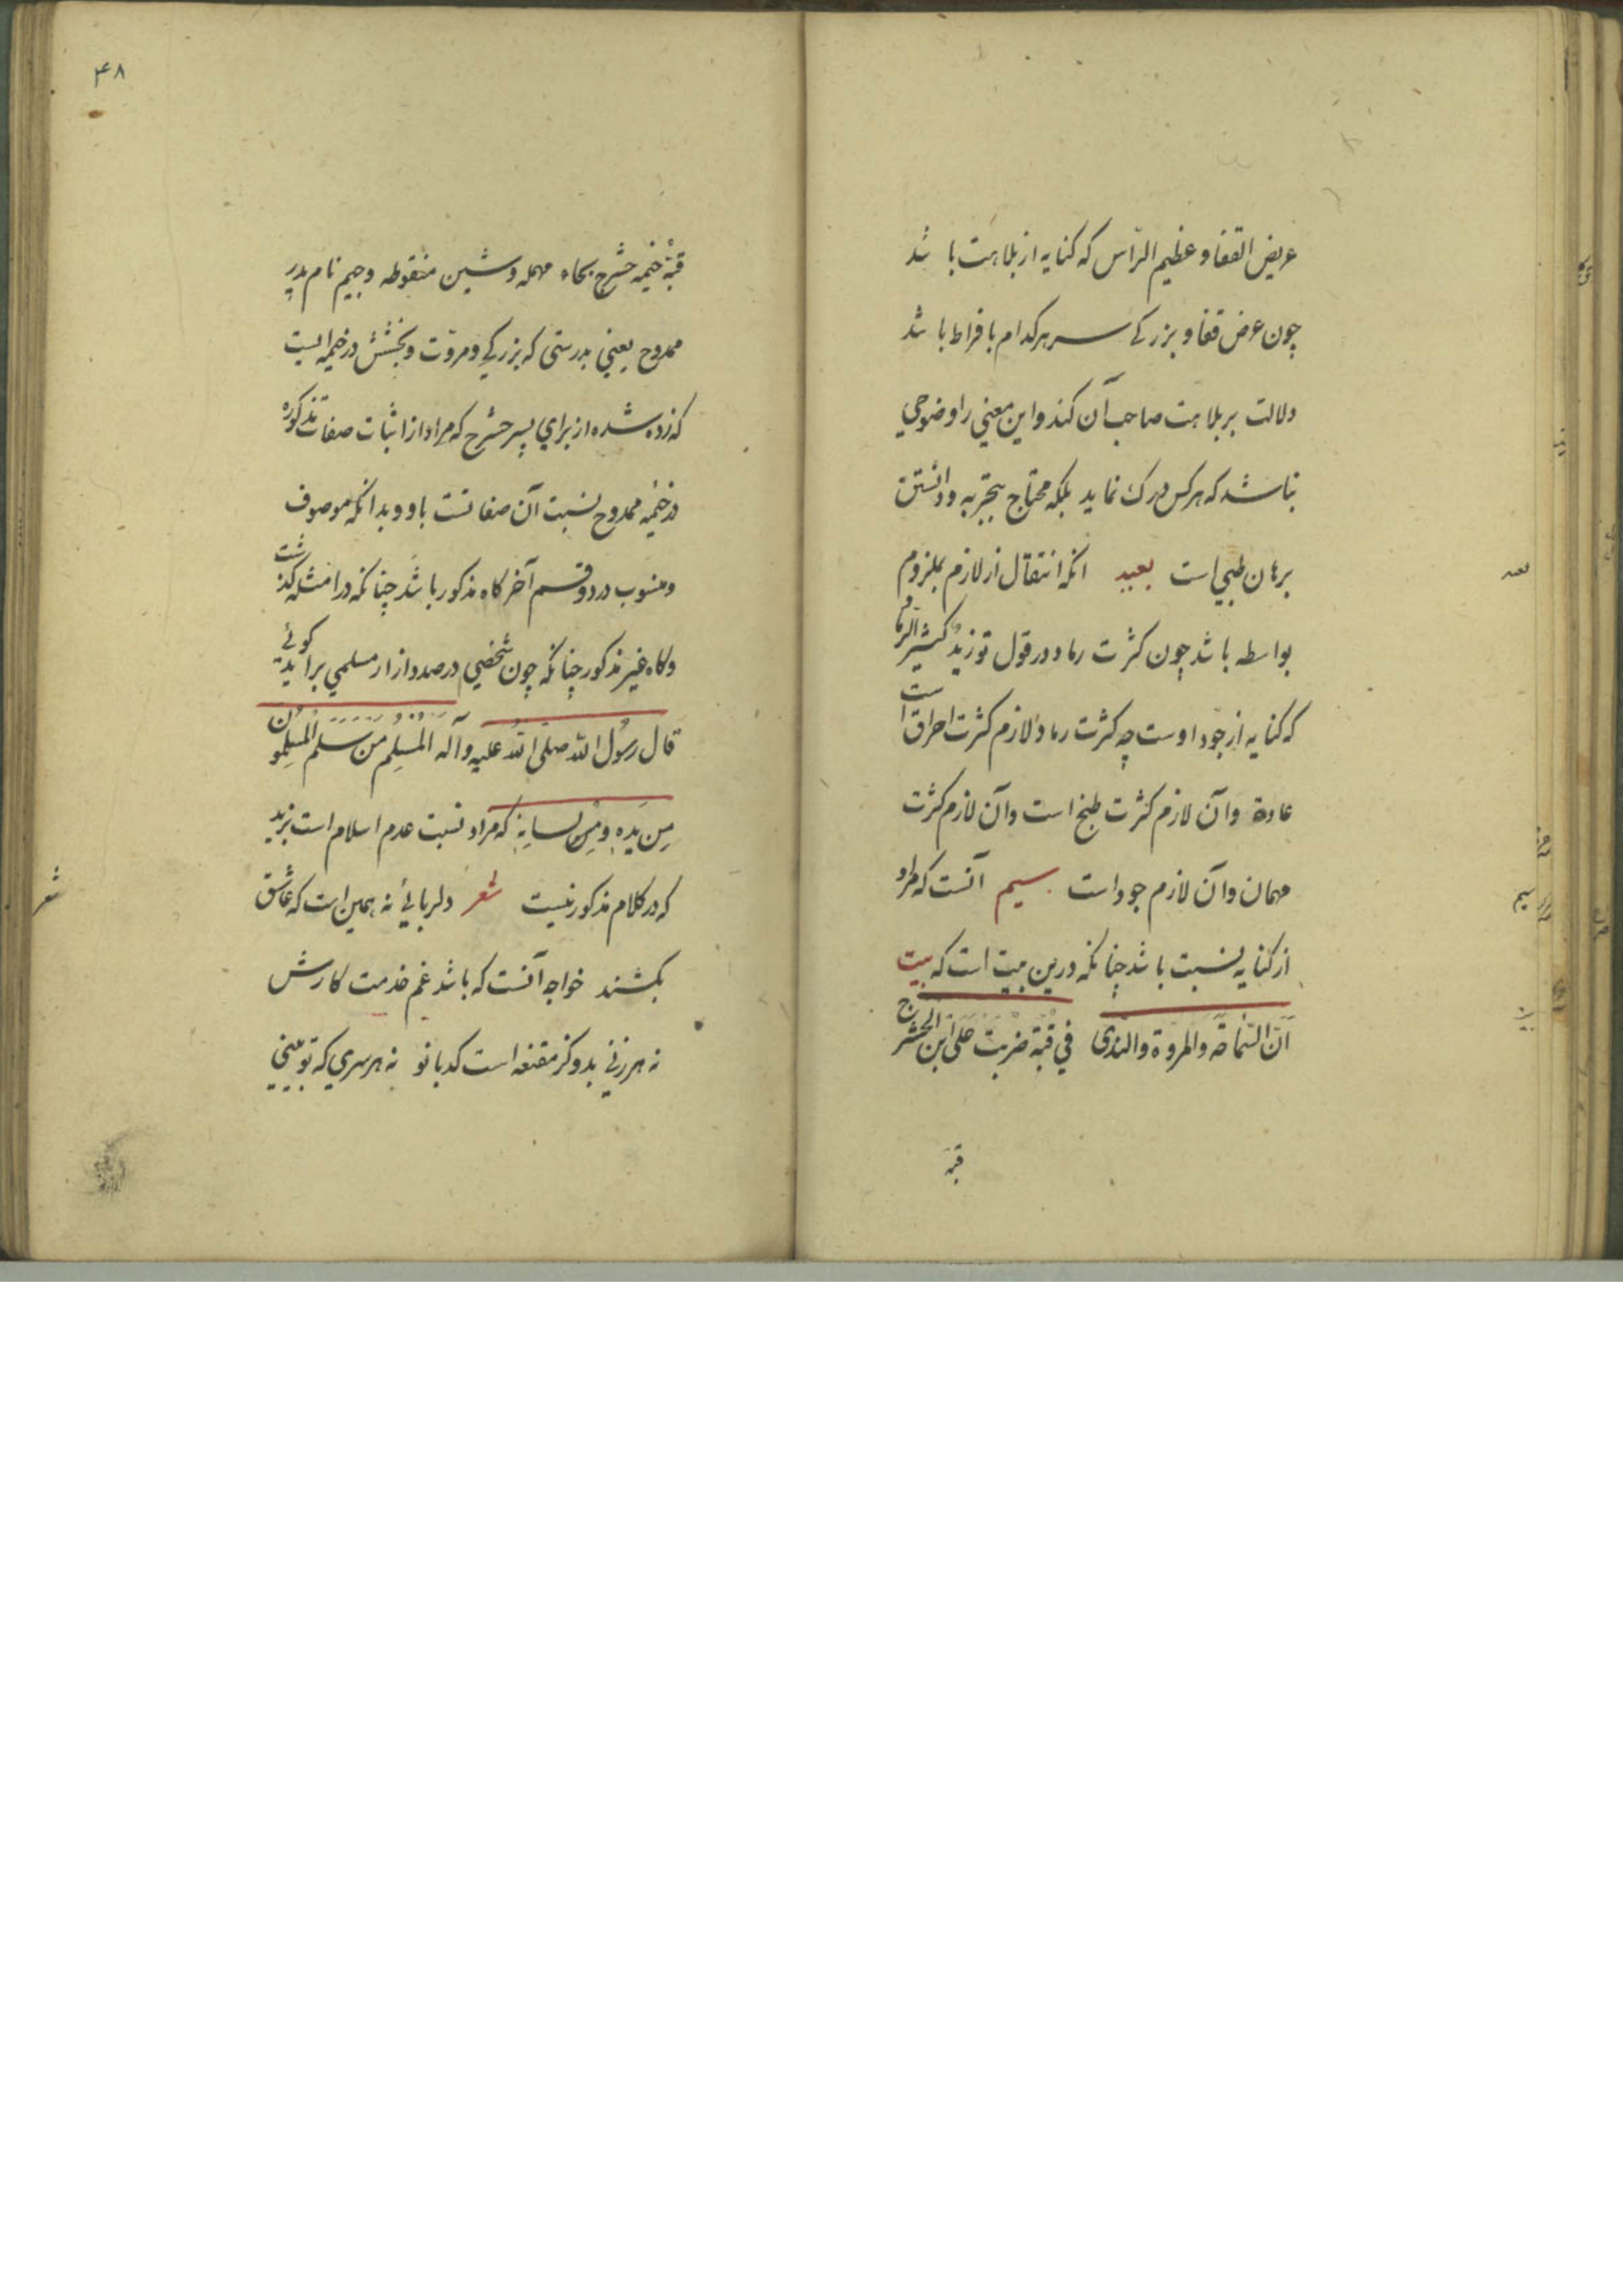 عریض القفا و عظیم الرّاس که کنایه از بلاهت با شد
چون عرض قفا و بزرکے سر هرکدام با فراط با شد
دلالت بر بلاهت صاحب آن کند و این معنی را وضوحی
نباشد که هر کس درک نماید بلکه محتاج بتجربه و دانستن
برهان طبی است بعید انکه انتقال از لازم بملزوم
بواسطه باشد چون کثرت رماد در قول تو زیدٌ کثیر الرماد
که کنایه از جود اوست چه کثرت رماد لازم کثرت احراق است
عادة و آن لازم کثرت طبخ است و آن لازم کثرت
مهمان و آن لازم جود است سیم آنست که مراد
از کنایه نسبت باشد چنانکه درین بیت است که بیت
انّ السّماحة والمروة والندى في قبّة ضربت على ابن الحشرج
قبّه
۴۸
قبّه خیمه حشرج بحاء مهمله و شین منقوطه و جیم نام پدر
ممدوح یعنی بدرستی که بزرکی و مروّت و بخشش در خیمه ایست
که زده شده از برای پسر حشرج که مراد از اثبات صفات مذکوره
در خیمه ممدوح نسبت آن صفاتست باو و بدانکه موصوف
و منسوب در دو قسم آخر کاه مذکور باشد چنانکه در امثله کذشت
و کاه غیر مذکور چنانکه چون شخصی در صدد ازار مسلمی براید کوئے
قال رسول الله صلى الله عليه وآله المُسلِم من سلم المُسلِمون
مِن يَدِهِ ومِن لسانِه که مراد نسبت عدم اسلام است بزید
که در کلام مذکور نیست شعر دلربائے نه همین است که عاشق
بکشند خواجه آنست که باشد غم خدمت کارش
نه هر زنی بدو کز مقنعه است کدبانو نه هر سری که تو بینی
بعد
سیم
شعر